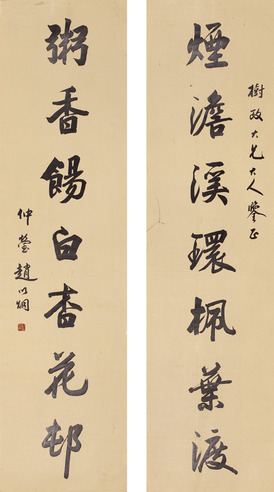 樹政大兄大人鑒正
煙澹溪環楓葉渡
粥香餳白杏花邨
仲瑩趙以炯